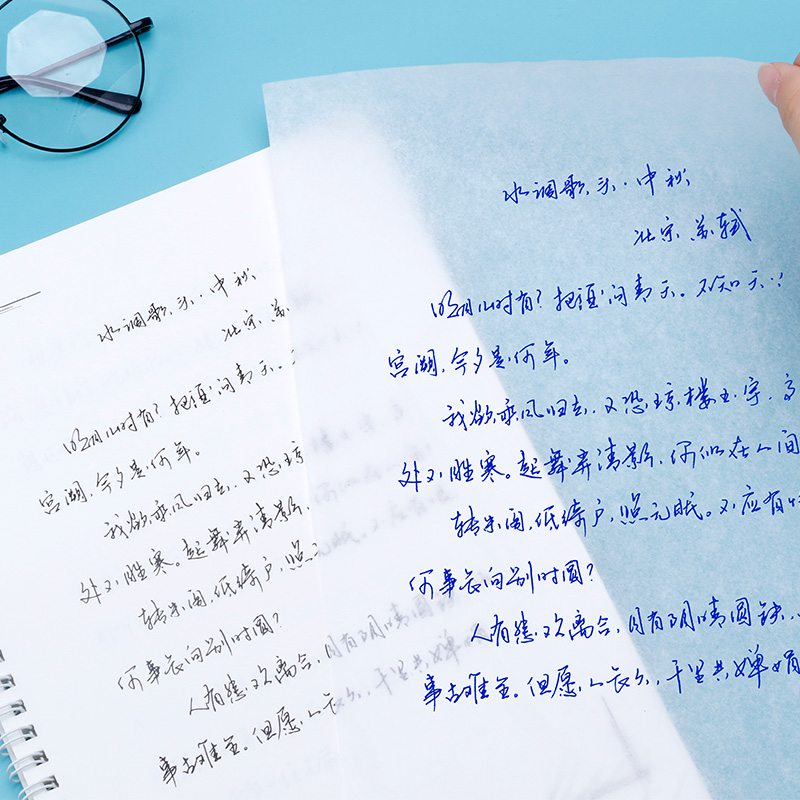 水调歌头·中秋
北宋 苏
明月几时有？把酒问青天。
宫阙，今夕是何年。
我欲乘风归去，又恐琼
处不胜寒。起舞弄清影，
转朱阁，低绮户，照无
何事长向别时圆？
人有悲欢离合，月有阴晴圆
事古难全。但愿人长久，千里共婵
水调歌头·中秋
北宋 苏轼
明月几时有？把酒问青天。不知天
宫阙，今夕是何年。
我欲乘风归去，又恐琼楼玉宇，高
处不胜寒。起舞弄清影，何似在人间
转朱阁，低绮户，照无眠。不应有
何事长向别时圆？
人有悲欢离合，月有阴晴圆缺，
事古难全。但愿人长久，千里共婵娟